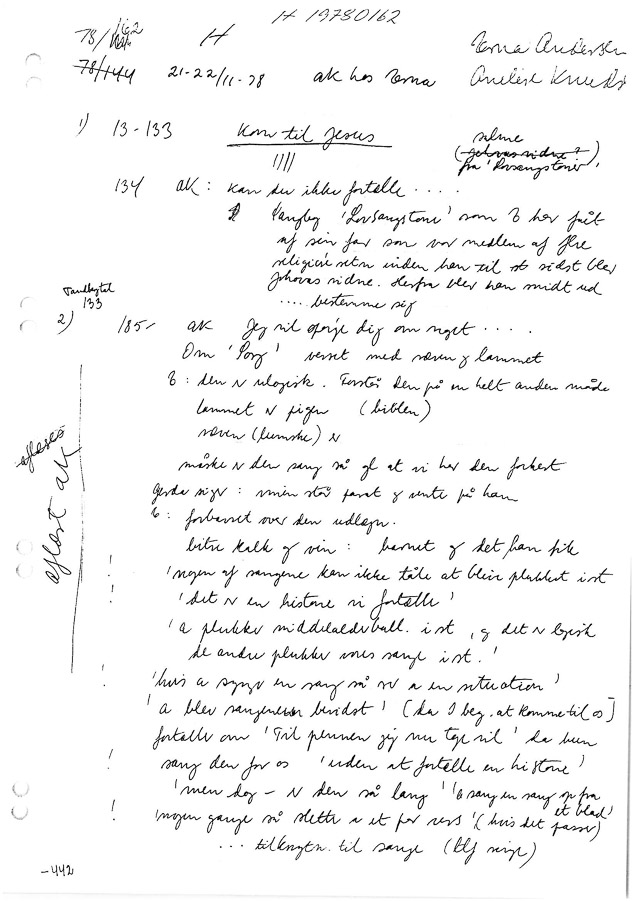 H 19780162
78/162 H Zerna Andersen
78/144 21-22/11-78 ak hos Zerna Anelise Knuds
1) 13-133 Kom til Jesus salme
(jehovas vidne?)
fra 'Lovsangstoner'.
134 ak: kan du ikke fortælle ....
Sangbog 'Lovsangstone' som B har fået
af sin far som var medlem af flre
religiøse seter inden han til st sidst blev
Jehovas vidne. Herfra blev han smidt ud
..... bestemme sig
Tandbyttel
133
2) 185- ak Jeg vil spørge dig om noget .....
Om 'Sorg' verset med ræven & lammet
B: den er ulogisk. Forstår den på en helt anden måde
lammet er pigen (biblen)
ræven (lumske) er
måske er den sang så gl at vi har den forkert
Gerda siger: men stå parat & vente på ham
B: forbavset over den udlægn.
bitre kalk og vin: barnet & det han fik
! 'nogen af sangene kan ikke tåle at blive plukket ist
! 'det er en historie vi fortælle'
'a plukker middelalderball. ist, & det er logisk
de andre plukker vores sange ist.'
! 'hvis a synger en sang så er a en situation'
'a blev sangene bevidst' (da I beg. at komme til os)
fortælle om 'Til pennen jeg nu tage vil' da hun
! sang den for os 'uden at fortælle en histone'
'men dog - er den så lang' 'B sang en sang op fra et blad'
! 'nogen gange så sletter a et par vers' (hvis det passer)
... tilknytn. til sange
afløses
aflæst ak
-442